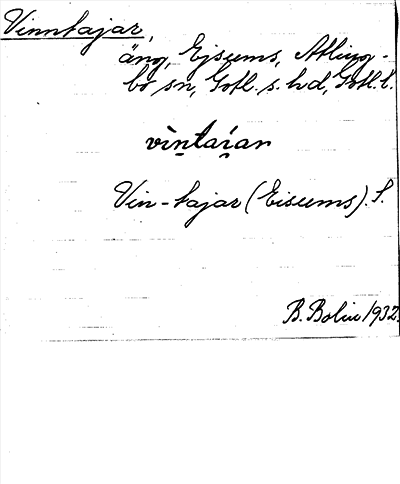 Vinntajar,
äng, Ejsums, Atling-
bo sn, Gotl. s. hd, Gotl. l.
vìn̠tai̯ar
Vin-tajar (Eisums). S.
B. Bolin 1932.